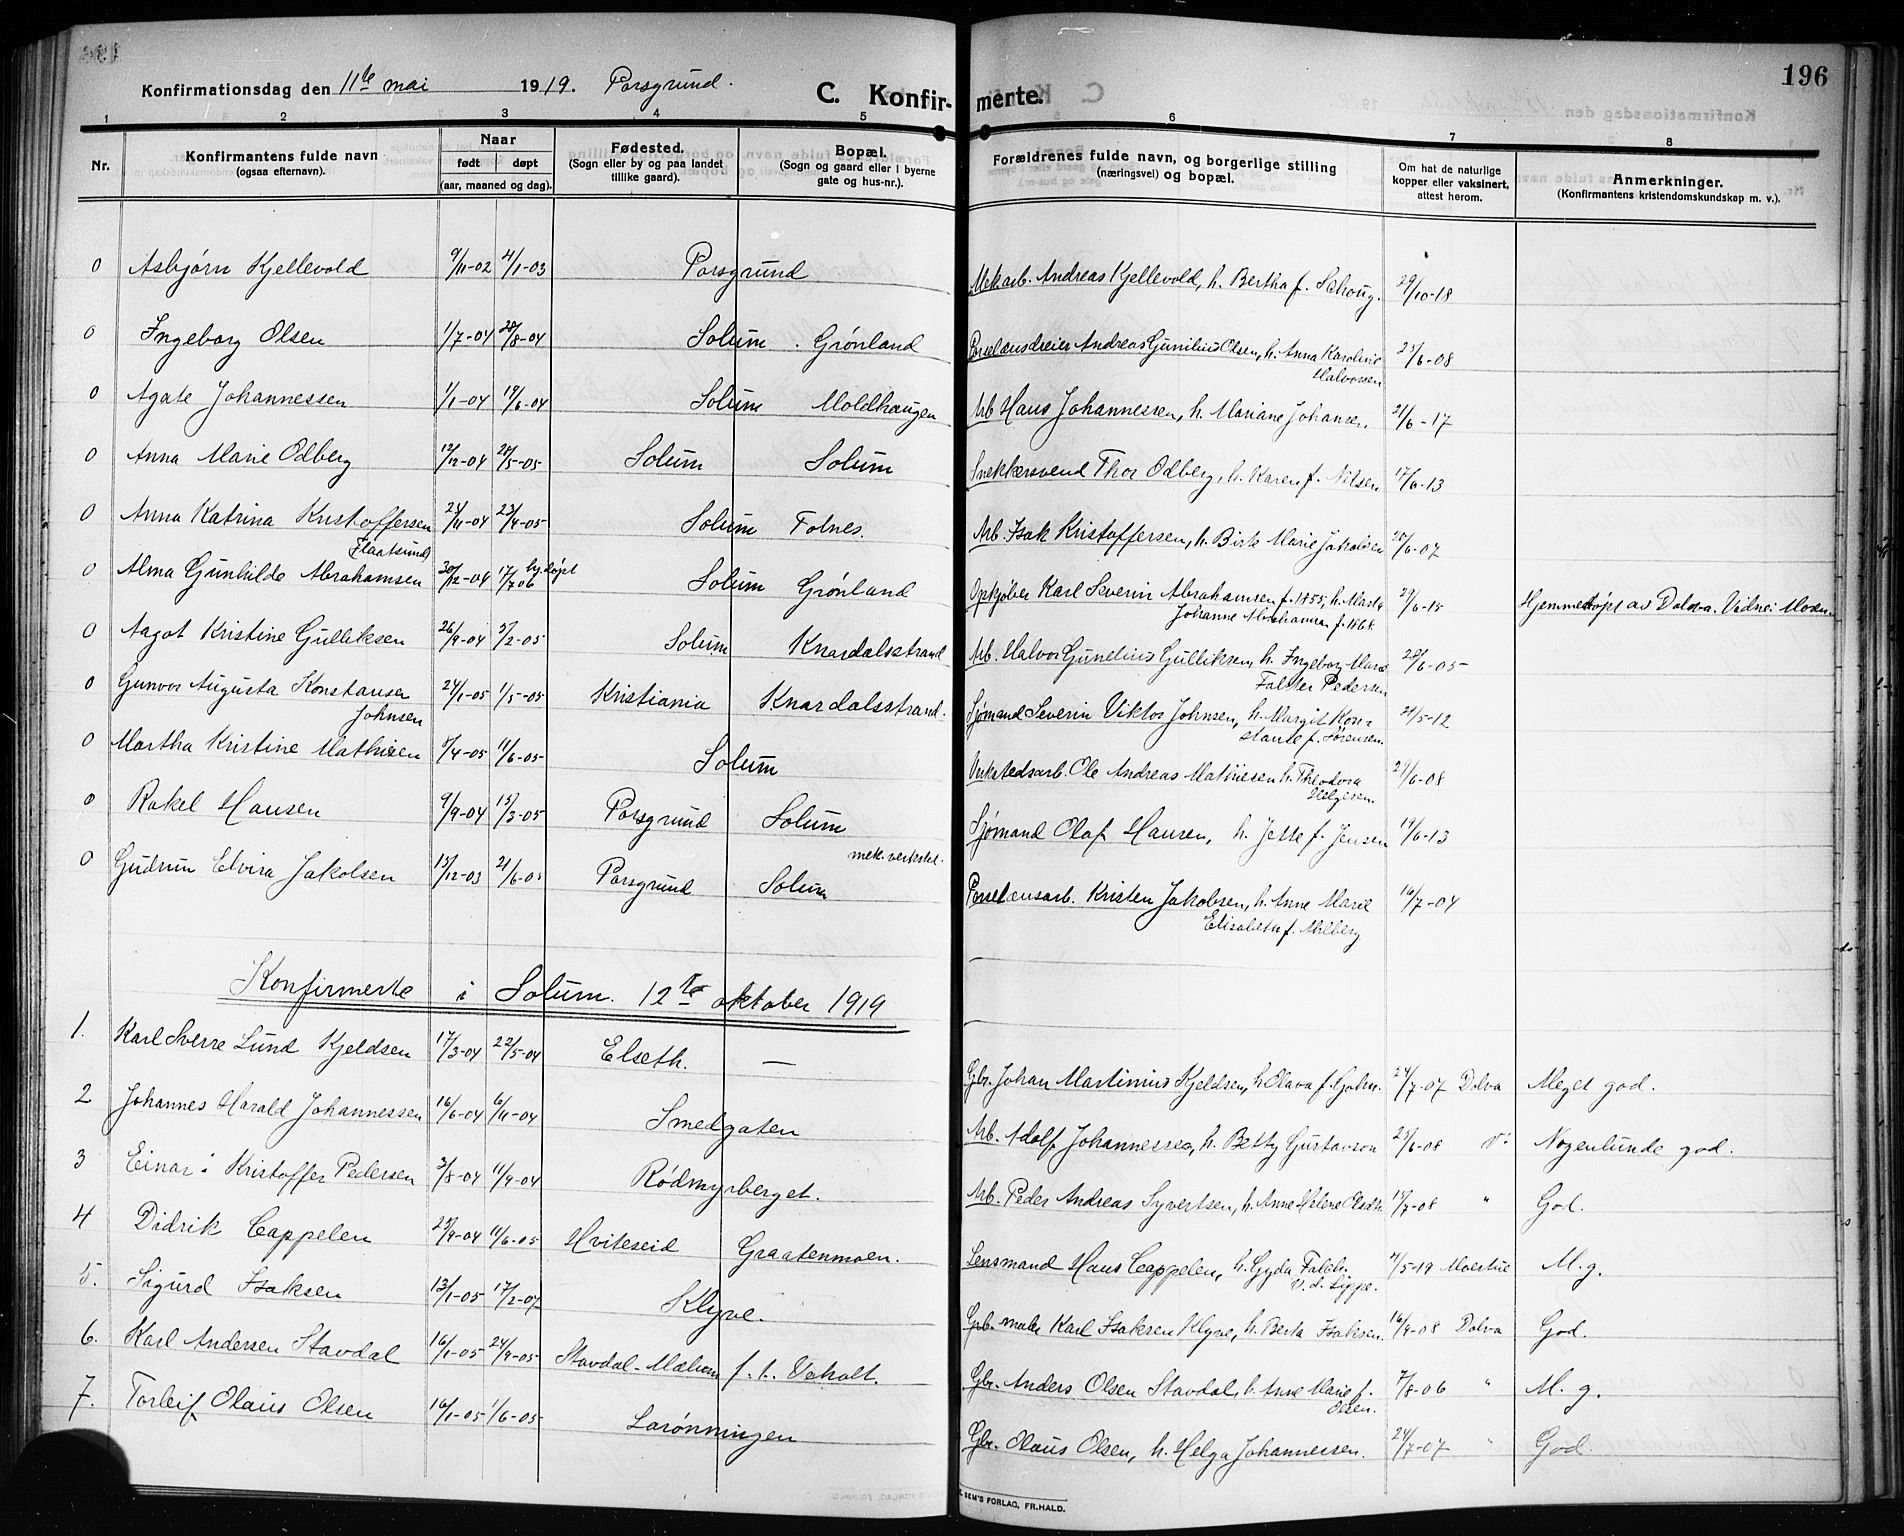 196
Konfirmationsdag den 11te mai 1919. Porsgrund.
C. Konfirmerte.
1 2 3 4 5 6 7 8
Nr.
Konfirmantens fulde navn (ogsaa efternavn).
Naar født døpt (aar, maaned og dag).
Fødested. (Sogn eller by og paa landet tillike gaard).
Bopæl. (Sogn og gaard eller i byerne gate og hus-nr.).
Forældrenes fulde navn, og borgerlige stilling (næringsvei) og bopæl.
Om hat de naturlige kopper eller vaksinert, attest herom.
Anmerkninger. (Konfirmantens kristendomskundskap m. v.).
0 Asbjørn Kjellevold 9/11-02 4/1-03 Porsgrund Mek.arb. Andreas Kjellevold, h. Bertha f. 29/10-18
0 Ingeborg Olsen 1/7-04 28/8-04 Solum . Grønland Porselænsdreier Andreas Gunilius Olsen, h. Anna Karoline Halvorsen 25/6-08
0 Agate Johannessen 1/1-04 19/6-04 Solum Moldhaugen Arb. Hans Johannessen, h. Mariane Johansen. 21/6-17
0 Anna Marie Odberg 12/12-04 28/5-05 Solum Solum Snekkersvend Thor Odberg, h. Karen f. Nilsen 17/6-13
0 Anna Katrina Kristoffersen 25/11-04 23/4-05 Solum Folnes. Arb. Isak Kristoffersen, h. Birte Marie Jakobsen 25/6-07
Flaatsund
0 Alma Gunhilde Abrahamsen 30/12-04 17/7 06 hj.døpt Solum Grønland Opkjøber Karl Severin Abrahamsen f. 1855, h. Marta Johanne Abrahamsen f. 1868. 29/6-15 Hjemmedøpt av Dolva. Vidne: Moen
0 Aagot Kristine Gulliksen 26/9-04 5/2-05 Solum Knardalsstrand Arb. Halvor Gunelius Gulliksen, h. Ingeborg Marie Falster Pedersen 28/6-05
0 Gunvor Augusta Konstanse Johnsen 24/1-05 1/5-05 Kristiania Knardalsstrand. Sjømand Severin Viktor Johnsen, h. Margit Konstanse f. Sørensen. 21/5-12
0 Martha Kristine Mathisen 5/4-05 11/6-05 Solum Verkstedsarb. Ole Andreas Mathiesen h. Theodora Helgesen. 29/6-08
0 Rakel Hansen 9/9-04 15/3-05 Porsgrund Solum Sjømand Olaf Hansen, h. Jette f. Jensen 19/6-13
mek. verksted.
0 Gudrun Elvira Jakobsen 15/12-03 21/6-05 Porsgrund Solum Porselænsarb. Kristen Jakobsen, h. Anne Marie Elisabeth f. Ahlberg 16/7-04
Konfirmerte i Solum. 12te oktober 1919
1. Karl Sverre Lund Kjeldsen 17/3-04 22/5-04 Elseth. — Gbr. Johan Martinius Kjeldsen, h. Olava f. Gohn. 24/7-07 Dolva Meget god.
2 Johannes Harald Johannessen 16/6-04 6/11-04 Smedgaten Arb. Adolf Johannessen, h. Betty Gustavson 25/6-08 Do Nogenlunde god.
3 Einar Kristoffer Pedersen 3/8-04 11/9-04 Rødmyrberget. Arb. Peder Andreas Syvertsen, h. Anne Helene Olsdtr. 15/7-08 " God.
4 Didrik Cappelen 25/9-04 11/6-05 Hviteseid Graatenmoen. Lensmand Hans Cappelen, h. Gyda v. d. Lippe. 2/5-19 M. g.
5. Sigurd Isaksen 13/1-05 17/2-07 Klyve. Gbr. maler Karl Isaksen Klyve, h. Berta Isaksen. 16/9-08 Dolva God.
6. Karl Andersen Stavdal 16/1-05 24/9-05 Stavdal-Mælum f. t. Veholt. Gbr. Anders Olsen Stavdal, h. Anne Marie f. Olsen. 7/8-06 " M. g.
7. Torleif Olaus Olsen 16/1-05 1/6-05 Larønningen Gbr. Olaus Olsen, h. Helga Johannessen. 24/7-07 " God.
SEM'S FORLAG, FR.HALD.